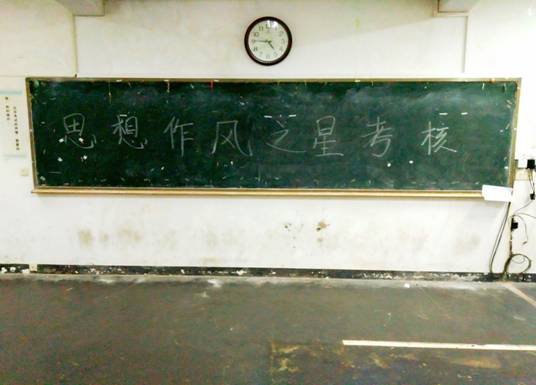 思想作风之星考核